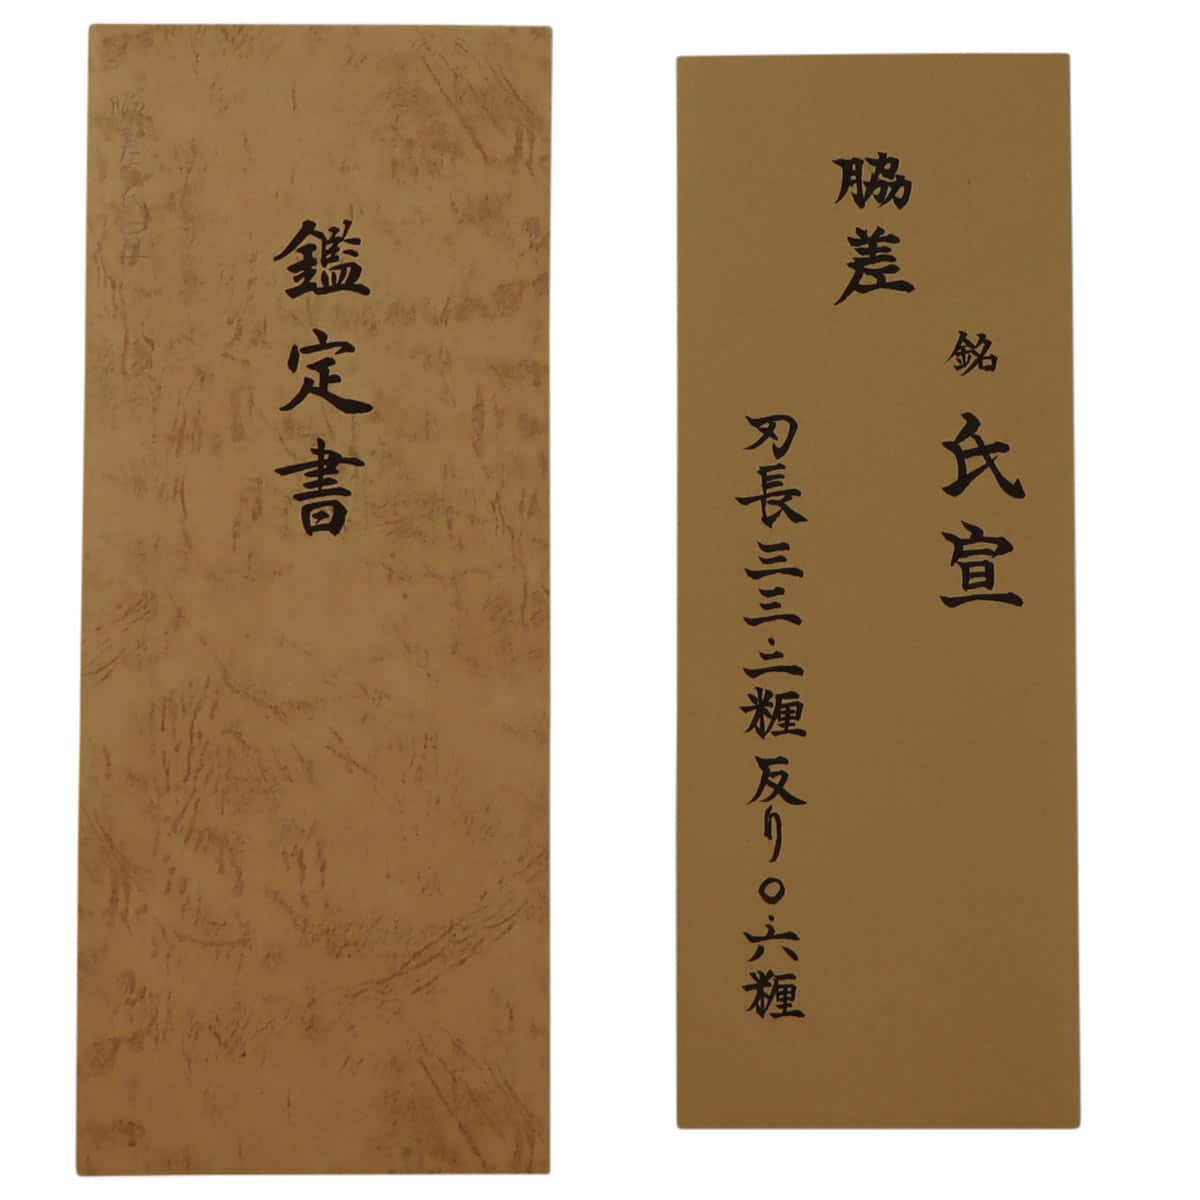 鑑定書
脇差
銘 氏宣
刃長三三.二糎反り〇.六糎